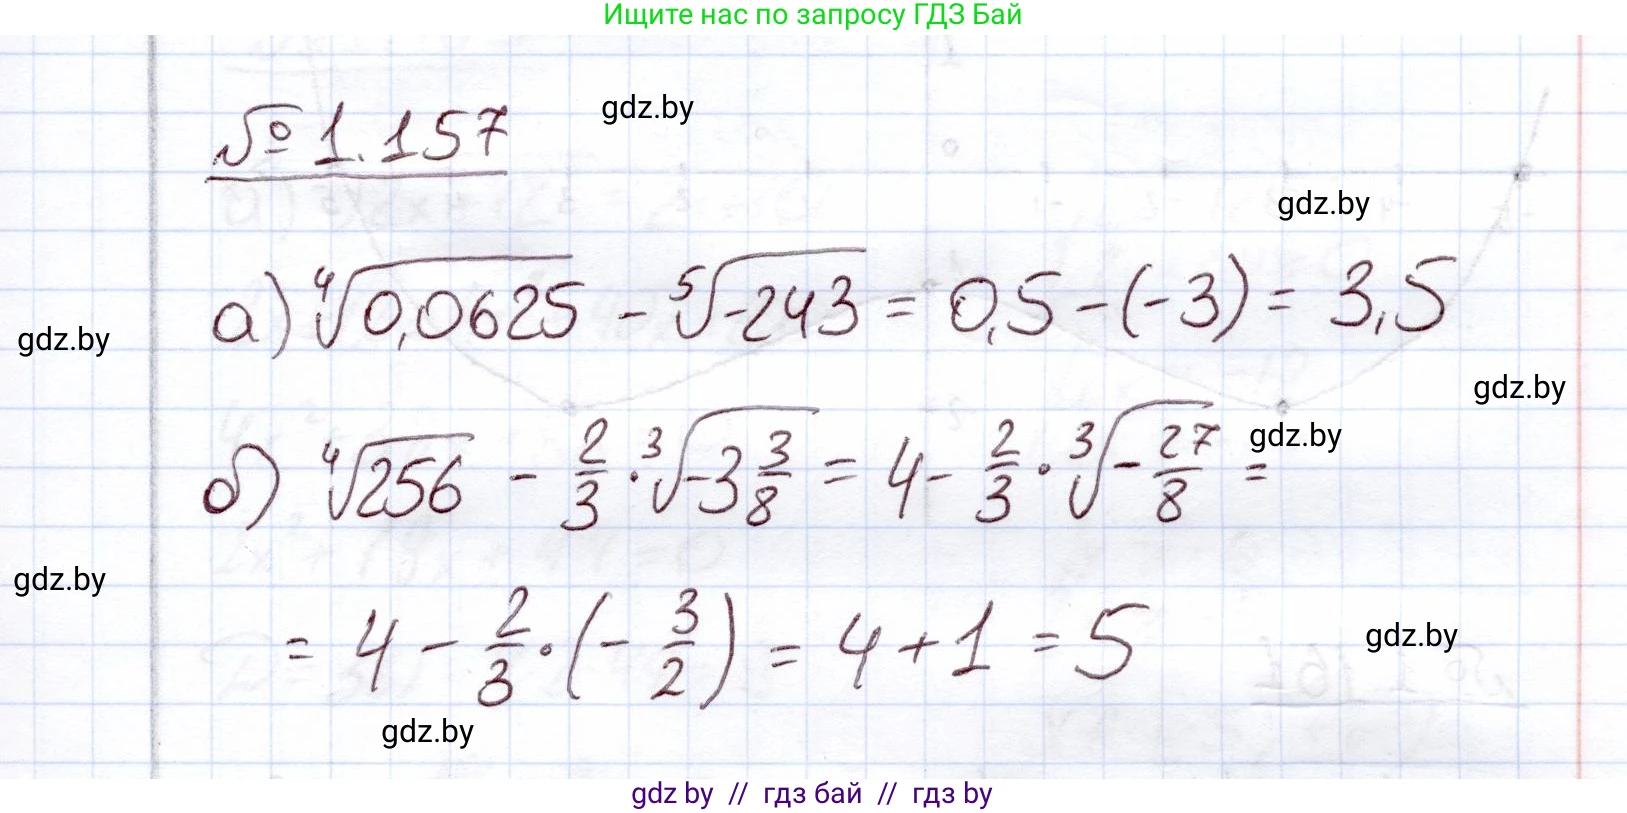 Ищите нас по запросу ГДЗ Бай
№ 1.157
gdz.by
gdz.by
а) ⁴√0,0625 - ⁵√-243 = 0,5 - (-3) = 3,5
gdz.by
gdz.by
б) ⁴√256 - 2/3 · ³√-3 3/8 = 4 - 2/3 · ³√-27/8 =
gdz.by
gdz.by
= 4 - 2/3 · (- 3/2) = 4 + 1 = 5
gdz.by
gdz.by
gdz by // гдз бай // гдз by